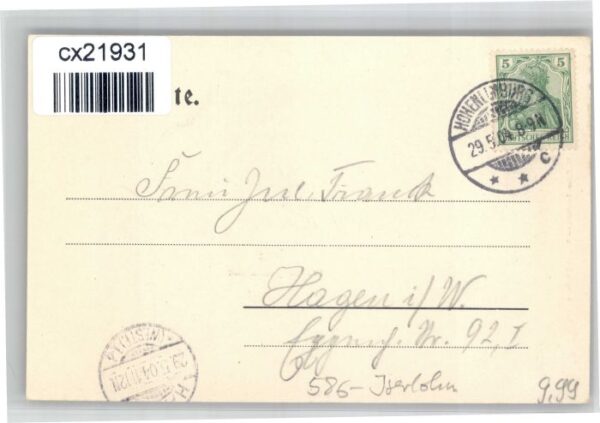 cx21931
te.
5 5
HOHENLIMBURG
29.5.04. 8-9N
c
Frau Jul. Frank
Hagen i/W.
Nr. 92, I
(WESTF.)
29.5.04
586- Iserlohn
9,99